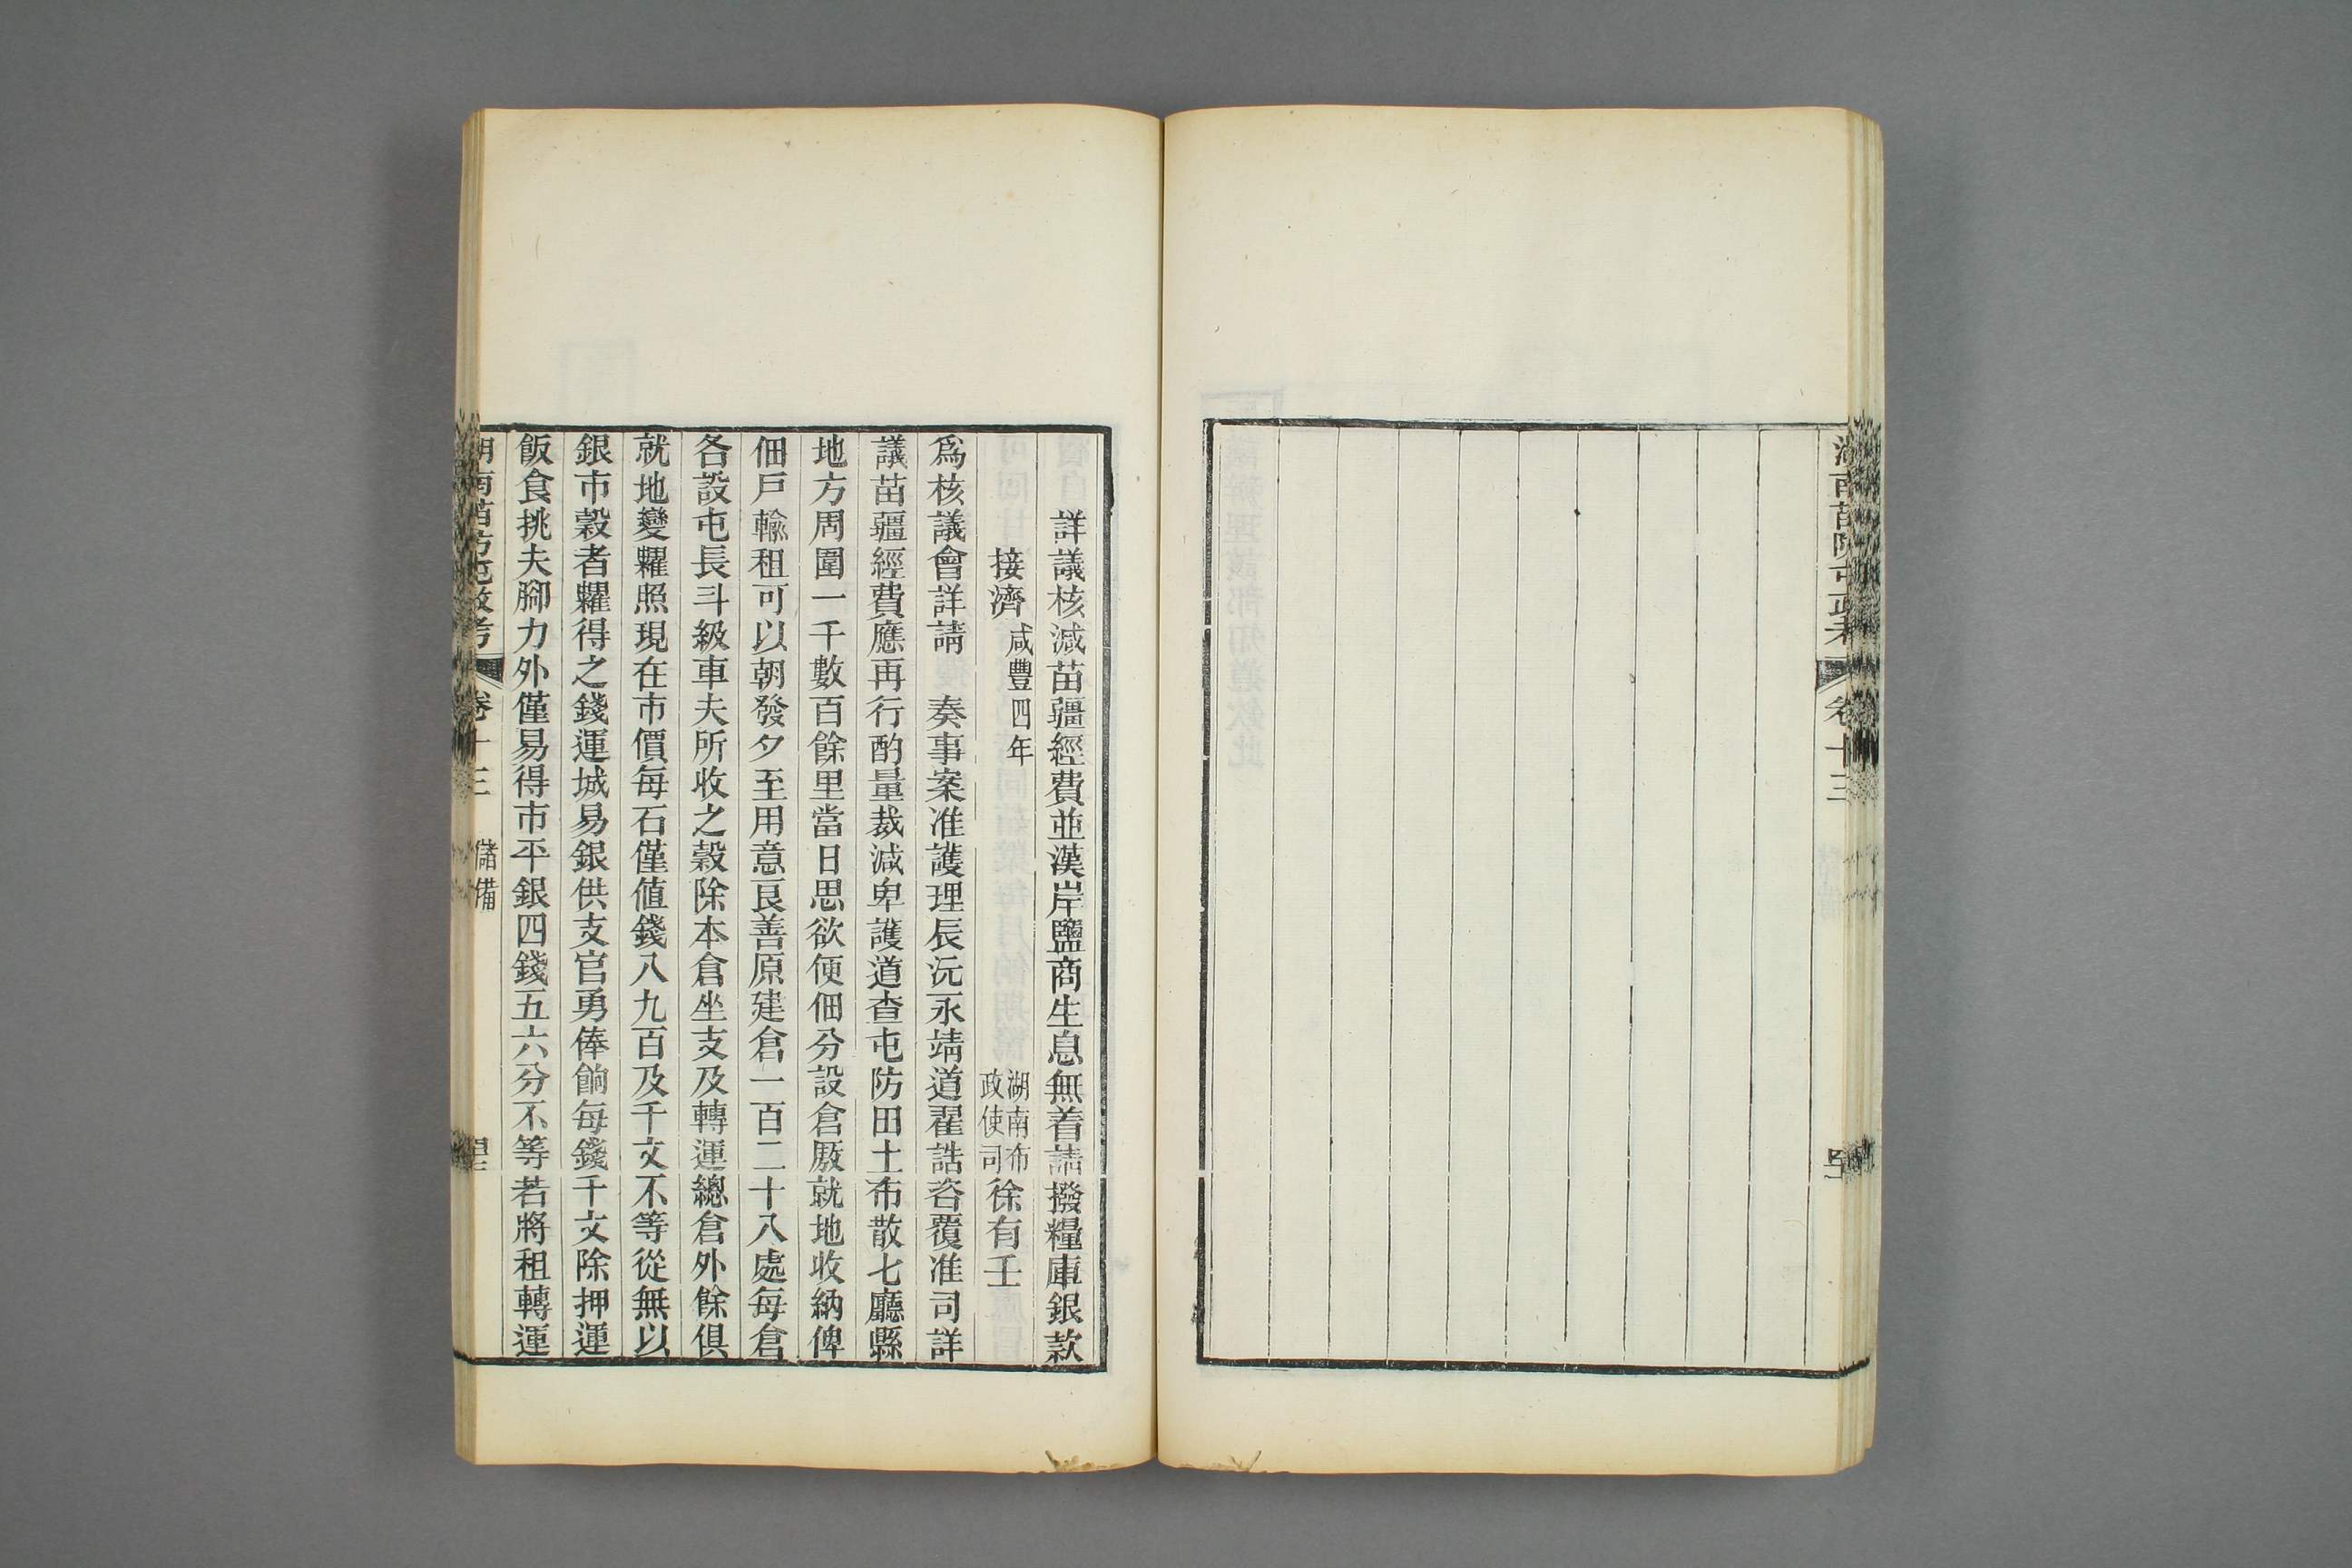 湖南苗防屯政考
卷十三
詳議核減苗疆經費並漢岸鹽商生息無着請撥糧庫銀款
接濟 咸豐四年 湖南布政使司 徐有壬
爲核議會詳請 奏事案准護理辰沅永靖道翟誥咨覆准司詳
議苗疆經費應再行酌量裁減卑護道查屯防田土布散七廳縣
地方周圍一千數百餘里當日思欲便佃分設倉厫就地收納俾
佃戶輸租可以朝發夕至用意良善原建倉一百二十八處每倉
各設屯長斗級車夫所收之穀除本倉坐支及轉運總倉外餘俱
就地變糶照現在市價每石僅值錢八九百及千文不等從無以
銀市穀者糶得之錢運城易銀供支官勇俸餉每錢千文除押運
飯食挑夫腳力外僅易得市平銀四錢五六分不等若將租轉運
湖南苗防屯政考
卷十三
儲備